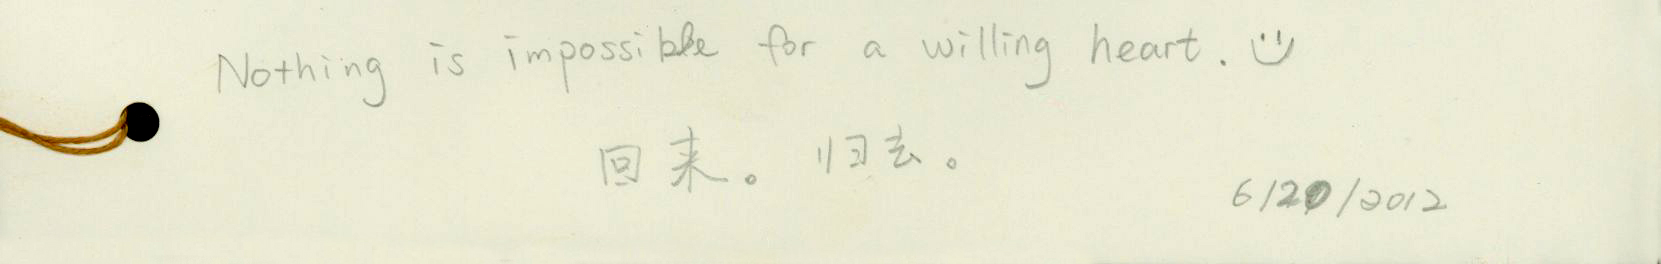 Nothing is impossible for a willing heart.
回来。归去。
6/20/2012